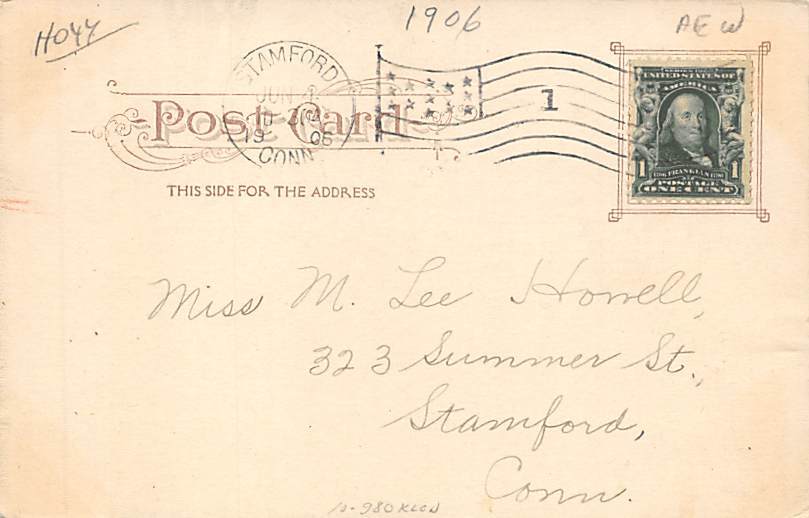 HO44
1906
AEW
STAMFORD
JUN 4
19 06
CONN
1
Post Card
THIS SIDE FOR THE ADDRESS
UNITED STATES OF
AMERICA
1 FRANKLIN 1
POSTAGE
ONE CENT
Miss M. Lee Howell,
323 Summer St.,
Stamford,
Conn.